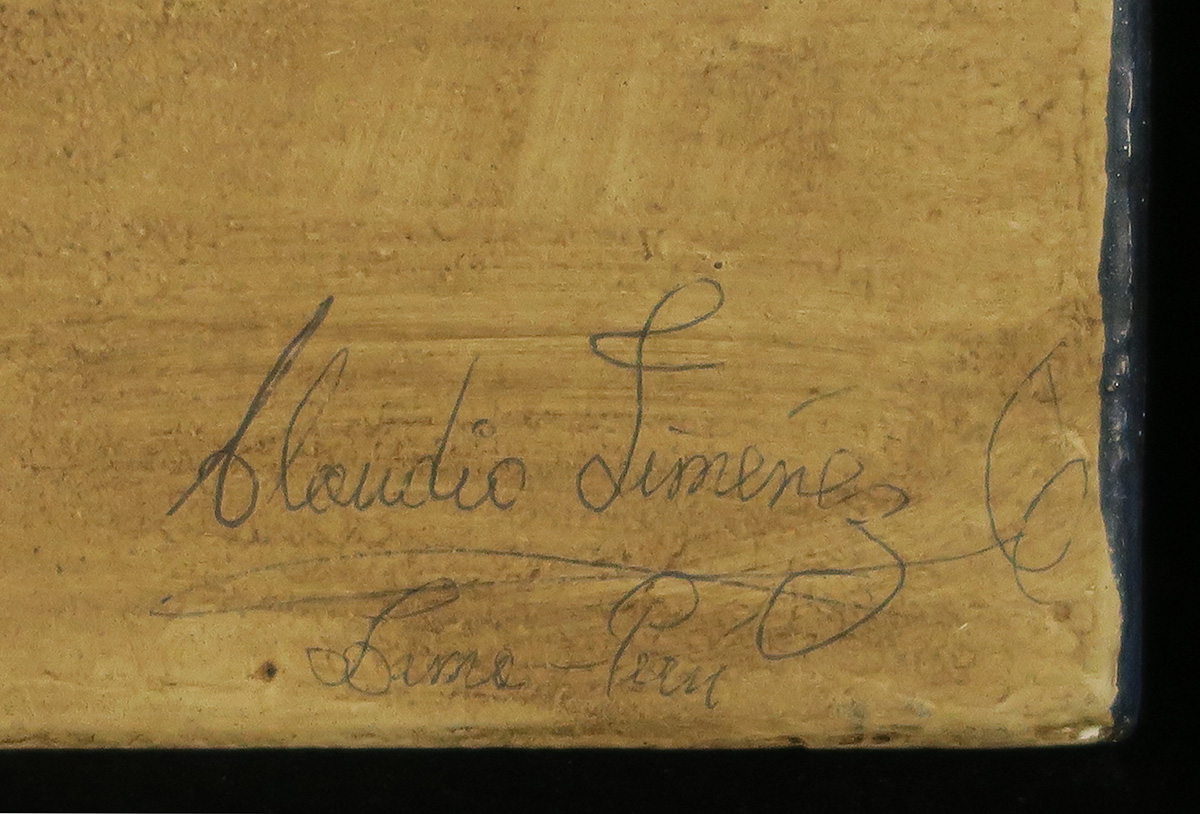 Claudio Jiménez Q
Lima - Peru